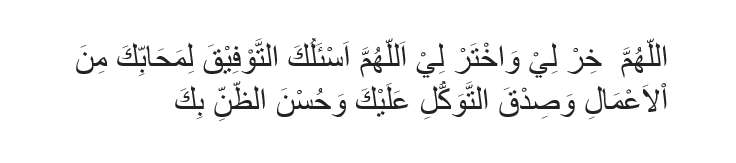 اللّهُمَّ خِرْ لِيْ وَاخْتَرْ لِيْ اَللّهُمَّ اَسْئَلُكَ التَّوْفِيْقَ لِمَحَابِّكَ مِنَ
اْلاَعْمَالِ وَصِدْقَ التَّوَكُّلِ عَلَيْكَ وَحُسْنَ الظّنِّ بِكَ